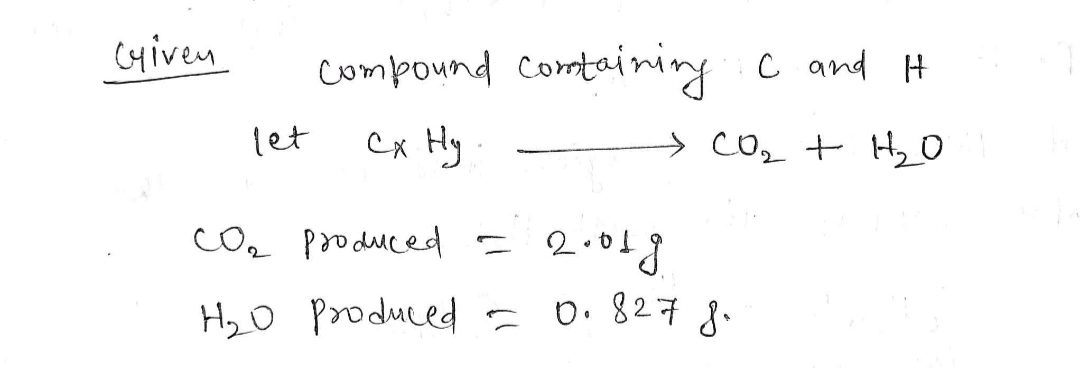 Given compound containing C and H
let CxHy → CO₂ + H₂O
CO₂ produced = 2.01g
H₂O produced = 0.827 g.